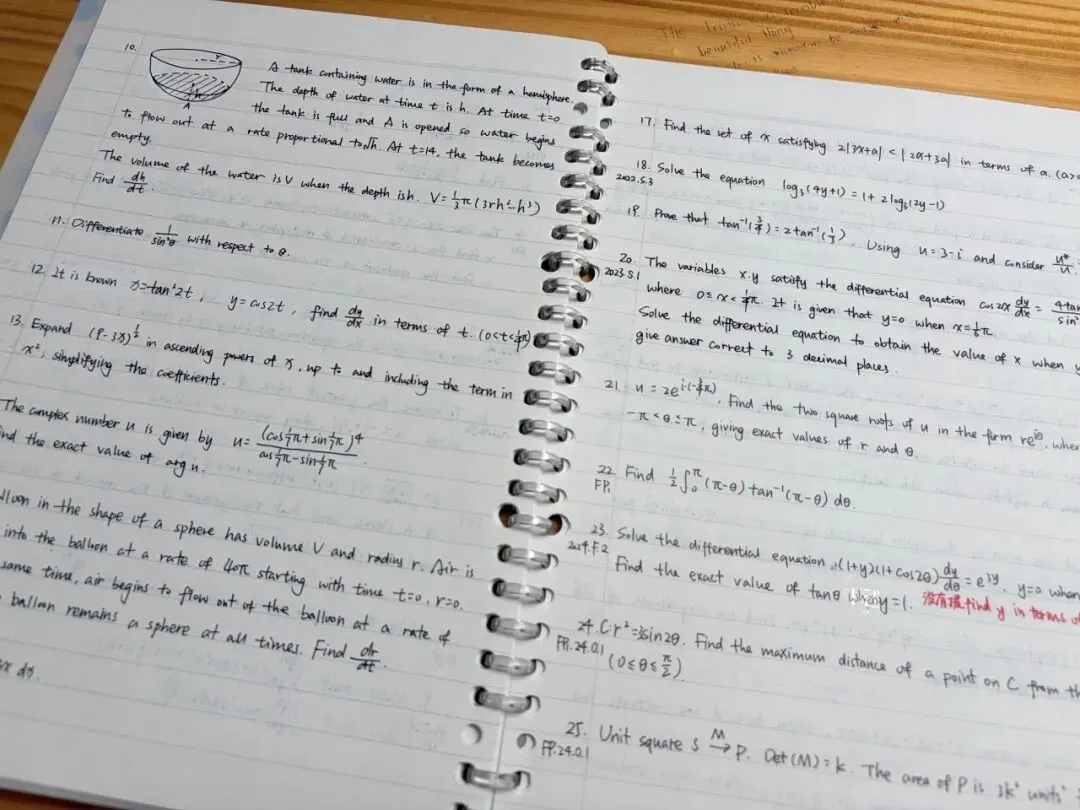 10.
r
h
A
A tank containing water is in the form of a hemisphere.
The depth of water at time t is h. At time t=0
the tank is full and A is opened so water begins
to flow out at a rate proportional to √h. At t=14, the tank becomes
empty.
The volume of the water is V when the depth is h. V=1/3π(3rh²-h³)
Find dh/dt.
11. Differentiate 1/sin²θ with respect to θ.
12 It is known x=tan²2t, y=cos2t, find dy/dx in terms of t. (0<t<1/4π)
13. Expand (P-3x)^(1/2) in ascending powers of x, up to and including the term in
x², simplifying the coefficients.
The complex number u is given by u=(cos1/7π+isin1/7π)⁴/cos1/7π-isin1/7π.
ind the exact value of arg u.
lloon in the shape of a sphere has volume V and radius r. Air is
into the balloon at a rate of 40π starting with time t=0, r=0.
same time, air begins to flow out of the balloon at a rate of
balloon remains a sphere at all times. Find dr/dt.
dx.
The
beautiful thing
17. Find the set of x satisfying 2|3x+a| < |2x+3a| in terms of a. (a>0
18. Solve the equation log₃(4y+1) = 1+2log₃(2y-1)
2022.S.3
19. Prove that tan⁻¹(3/4)=2tan⁻¹(1/3). Using u=3-i and consider u*/u
20. The variables x.y satisfy the differential equation cos2x dy/dx = 4tan
2023.S.1
where 0≤x<1/4π. It is given that y=0 when x=1/6π.
Solve the differential equation to obtain the value of x when y
give answer correct to 3 decimal places.
21. u = 2e^i(-3/4π), Find the two square roots of u in the form re^iθ, wher
-π<θ≤π, giving exact values of r and θ.
22. Find 1/2∫₀^π(π-θ)tan⁻¹(π-θ) dθ.
FP1
23. Solve the differential equation (1+y)(1+cos2θ)dy/dθ=e^3y y=0 when
2024.F.2
Find the exact value of tanθ when y=1. 没有提find y in terms o
24. C: r²=3sin2θ. Find the maximum distance of a point on C from th
FP1.24.0.1
(0≤θ≤π/2)
25. Unit square S →M P. Det(M)=k. The area of P is 3k² units²
FP.24.0.1